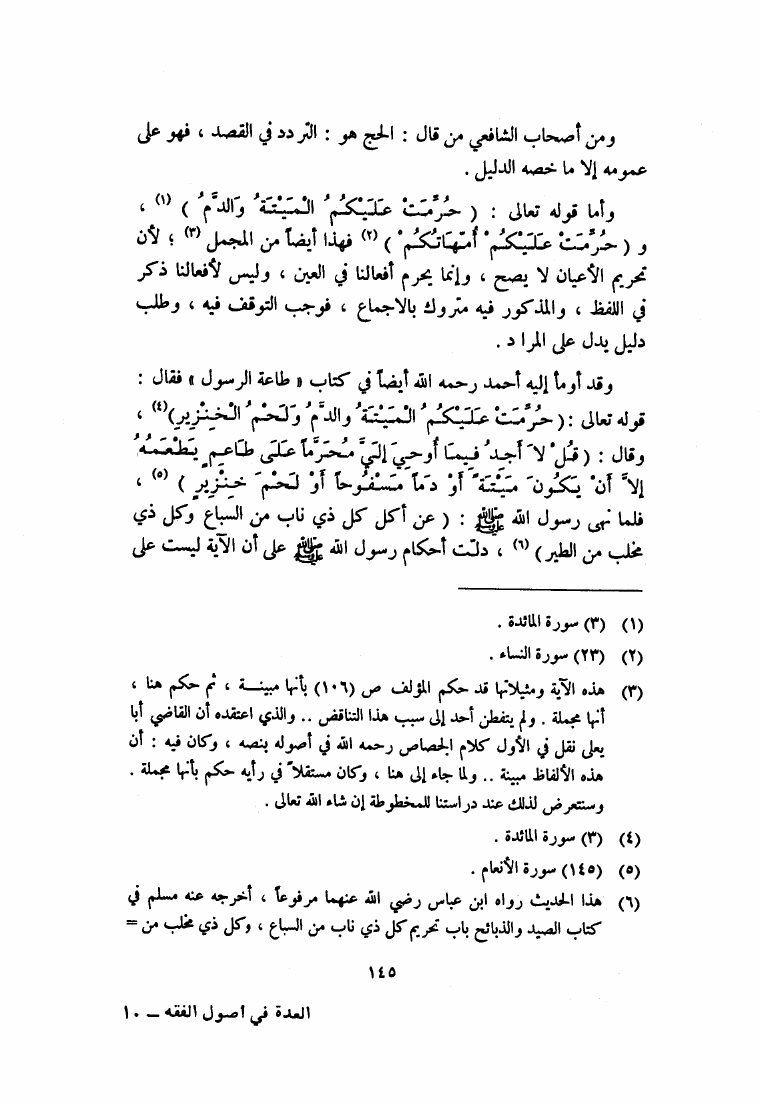 ومن أصحاب الشافعي من قال : الحج هو : التردد في القصد ، فهو على
عمومه إلا ما خصه الدليل .
وأما قوله تعالى : ( حُرِّمَتْ عَلَيْكُمُ الْمَيْتَةُ وَالدَّمُ ) (١) ،
و ( حُرِّمَتْ عَلَيْكُمْ أُمَّهَاتُكُمْ ) (٢) فهذا أيضاً من المجمل (٣) ؛ لأن
تحريم الأعيان لا يصح ، وإنما يحرم أفعالنا في العين ، وليس لأفعالنا ذكر
في اللفظ ، والمذكور فيه متروك بالاجماع ، فوجب التوقف فيه ، وطلب
دليل يدل على المراد .
وقد أومأ إليه أحمد رحمه الله أيضاً في كتاب « طاعة الرسول » فقال :
قوله تعالى : ( حُرِّمَتْ عَلَيْكُمُ الْمَيْتَةُ والدَّمُ وَلَحْمُ الْخِنْزِيرِ)(٤) ،
وقال : ( قُلْ لاَ أَجِدُ فِيمَا أُوحِيَ إِلَيَّ مُحَرَّماً عَلَى طَاعِمٍ يَطْعَمُهُ
إلاَّ أَنْ يَكُونَ مَيْتَةً أَوْ دَماً مَسْفُوحاً أَوْ لَحْمَ خِنْزِيرٍ ) (٥) ،
فلما نهى رسول الله ﷺ : ( عن أكل كل ذي ناب من السباع وكل ذي
مخلب من الطير) (٦) ، دلت أحكام رسول الله ﷺ على أن الآية ليست على
(١) (٣) سورة المائدة .
(٢) (٢٣) سورة النساء .
(٣) هذه الآية ومثيلاتها قد حكم المؤلف ص (١٠٦) بأنها مبينــة ، ثم حكم هنا ،
أنها مجملة . ولم يتفطن أحد إلى سبب هذا التناقض .. والذي اعتقده أن القاضي أبا
يعلى نقل في الأول كلام الجصاص رحمه الله في أصوله بنصه ، وكان فيه : أن
هذه الألفاظ مبينة .. ولما جاء إلى هنا ، وكان مستقلاً في رأيه حكم بأنها مجملة .
وسنتعرض لذلك عند دراستنا للمخطوطة إن شاء الله تعالى .
(٤) (٣) سورة المائدة .
(٥) (١٤٥) سورة الأنعام .
(٦) هذا الحديث رواه ابن عباس رضي الله عنهما مرفوعاً ، أخرجه عنه مسلم في
كتاب الصيد والذبائح باب تحريم كل ذي ناب من السباع ، وكل ذي مخلب من =
١٤٥
العدة في أصول الفقه – ١٠